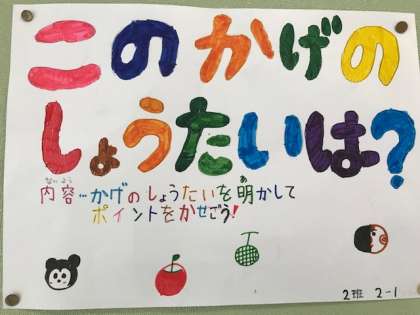 このかげの
しょうたいは?
内容…かげのしょうたいを明かして
ポイントをかせごう!
2班 2-1